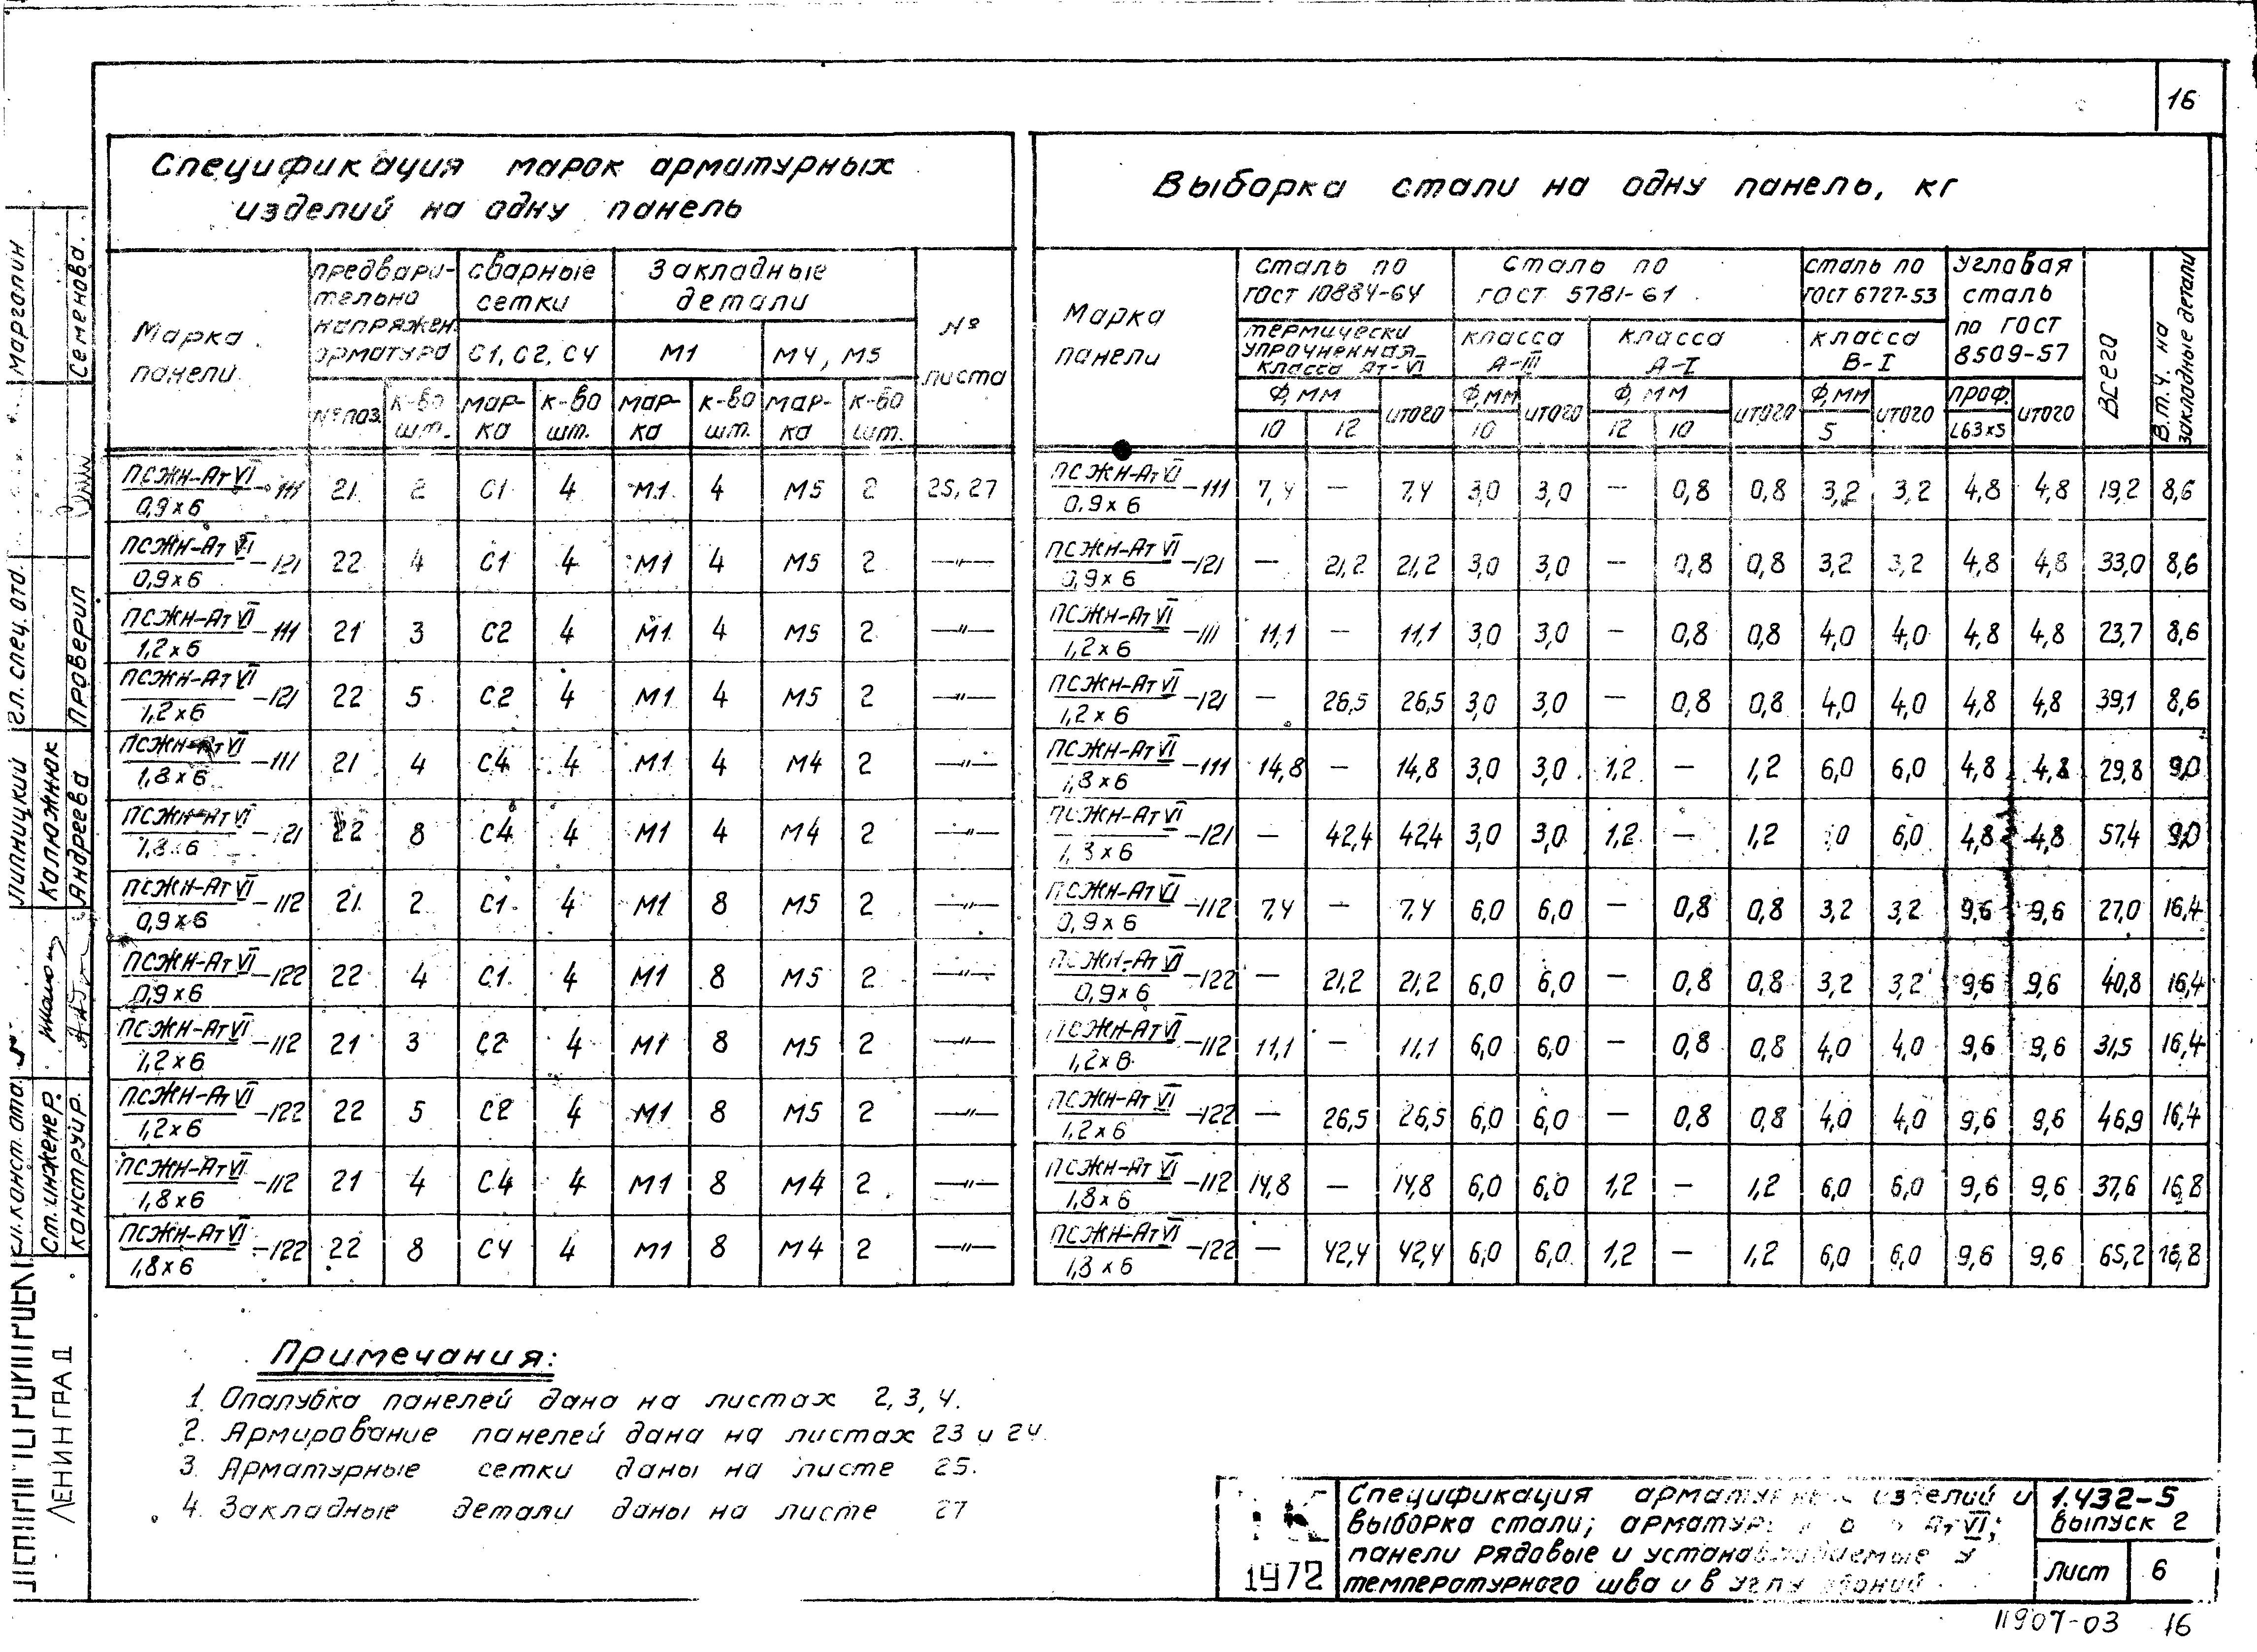 16
Спецификация марок арматурных
изделий на одну панель
Марка панели | предварительно напряжен. арматура | сварные сетки | Закладные детали | № листа
С1, С2, С4 | М1 | М4, М5
№ поз. | к-во шт. | мар-ка | к-во шт. | мар-ка | к-во шт. | мар-ка | к-во шт.
ПСЖН-Ат VI / 0,9х6 -111 | 21 | 2 | С1 | 4 | М1 | 4 | М5 | 2 | 25, 27
ПСЖН-Ат VI / 0,9х6 -121 | 22 | 4 | С1 | 4 | М1 | 4 | М5 | 2 | —"—
ПСЖН-Ат VI / 1,2х6 -111 | 21 | 3 | С2 | 4 | М1 | 4 | М5 | 2 | —"—
ПСЖН-Ат VI / 1,2х6 -121 | 22 | 5 | С2 | 4 | М1 | 4 | М5 | 2 | —"—
ПСЖН-Ат VI / 1,8х6 -111 | 21 | 4 | С4 | 4 | М1 | 4 | М4 | 2 | —"—
ПСЖН-Ат VI / 1,8х6 -121 | 22 | 8 | С4 | 4 | М1 | 4 | М4 | 2 | —"—
ПСЖН-Ат VI / 0,9х6 -112 | 21 | 2 | С1 | 4 | М1 | 8 | М5 | 2 | —"—
ПСЖН-Ат VI / 0,9х6 -122 | 22 | 4 | С1 | 4 | М1 | 8 | М5 | 2 | —"—
ПСЖН-Ат VI / 1,2х6 -112 | 21 | 3 | С2 | 4 | М1 | 8 | М5 | 2 | —"—
ПСЖН-Ат VI / 1,2х6 -122 | 22 | 5 | С2 | 4 | М1 | 8 | М5 | 2 | —"—
ПСЖН-Ат VI / 1,8х6 -112 | 21 | 4 | С4 | 4 | М1 | 8 | М4 | 2 | —"—
ПСЖН-Ат VI / 1,8х6 -122 | 22 | 8 | С4 | 4 | М1 | 8 | М4 | 2 | —"—
Выборка стали на одну панель, кг
Марка панели | сталь по ГОСТ 10884-64 | Сталь по ГОСТ 5781-61 | сталь по ГОСТ 6727-53 | Угловая сталь по ГОСТ 8509-57 | Всего | В.т.ч. на закладные детали
термически упрочненная класса Ат-VI | класса А-III | класса А-I | класса В-I
Ф, мм | итого | Ф, мм | итого | Ф, мм | итого | Ф, мм | итого | проф. | итого
10 | 12 | 10 | 12 | 10 | 5 | L63х5
ПСЖН-Ат VI / 0,9х6 -111 | 7,4 | — | 7,4 | 3,0 | 3,0 | — | 0,8 | 0,8 | 3,2 | 3,2 | 4,8 | 4,8 | 19,2 | 8,6
ПСЖН-Ат VI / 0,9х6 -121 | — | 21,2 | 21,2 | 3,0 | 3,0 | — | 0,8 | 0,8 | 3,2 | 3,2 | 4,8 | 4,8 | 33,0 | 8,6
ПСЖН-Ат VI / 1,2х6 -111 | 11,1 | — | 11,1 | 3,0 | 3,0 | — | 0,8 | 0,8 | 4,0 | 4,0 | 4,8 | 4,8 | 23,7 | 8,6
ПСЖН-Ат VI / 1,2х6 -121 | — | 26,5 | 26,5 | 3,0 | 3,0 | — | 0,8 | 0,8 | 4,0 | 4,0 | 4,8 | 4,8 | 39,1 | 8,6
ПСЖН-Ат VI / 1,8х6 -111 | 14,8 | — | 14,8 | 3,0 | 3,0 | 1,2 | — | 1,2 | 6,0 | 6,0 | 4,8 | 4,8 | 29,8 | 9,0
ПСЖН-Ат VI / 1,8х6 -121 | — | 42,4 | 42,4 | 3,0 | 3,0 | 1,2 | — | 1,2 | 0 | 6,0 | 4,8 | 4,8 | 57,4 | 9,0
ПСЖН-Ат VI / 0,9х6 -112 | 7,4 | — | 7,4 | 6,0 | 6,0 | — | 0,8 | 0,8 | 3,2 | 3,2 | 9,6 | 9,6 | 27,0 | 16,4
ПСЖН-Ат VI / 0,9х6 -122 | — | 21,2 | 21,2 | 6,0 | 6,0 | — | 0,8 | 0,8 | 3,2 | 3,2 | 9,6 | 9,6 | 40,8 | 16,4
ПСЖН-Ат VI / 1,2х6 -112 | 11,1 | — | 11,1 | 6,0 | 6,0 | — | 0,8 | 0,8 | 4,0 | 4,0 | 9,6 | 9,6 | 31,5 | 16,4
ПСЖН-Ат VI / 1,2х6 -122 | — | 26,5 | 26,5 | 6,0 | 6,0 | — | 0,8 | 0,8 | 4,0 | 4,0 | 9,6 | 9,6 | 46,9 | 16,4
ПСЖН-Ат VI / 1,8х6 -112 | 14,8 | — | 14,8 | 6,0 | 6,0 | 1,2 | — | 1,2 | 6,0 | 6,0 | 9,6 | 9,6 | 37,6 | 16,8
ПСЖН-Ат VI / 1,8х6 -122 | — | 42,4 | 42,4 | 6,0 | 6,0 | 1,2 | — | 1,2 | 6,0 | 6,0 | 9,6 | 9,6 | 65,2 | 16,8
Примечания:
1. Опалубка панелей дана на листах 2, 3, 4.
2. Армирование панелей дана на листах 23 и 24.
3. Арматурные сетки даны на листе 25.
4. Закладные детали даны на листе 27
ТК
1972
Спецификация арматурных изделий и
выборка стали; Ат VI;
панели рядовые и устанавливаемые у
температурного шва и в углу зданий
1.432-5
выпуск 2
Лист 6
11907-03 16
Марголин
Семенова.
гл. спец. отд.
Проверил
Липницкий
Калюжнюк
Андреева
гл. конст. отд.
Ст. инженер.
конструир.
ЛЕНИНГРАД